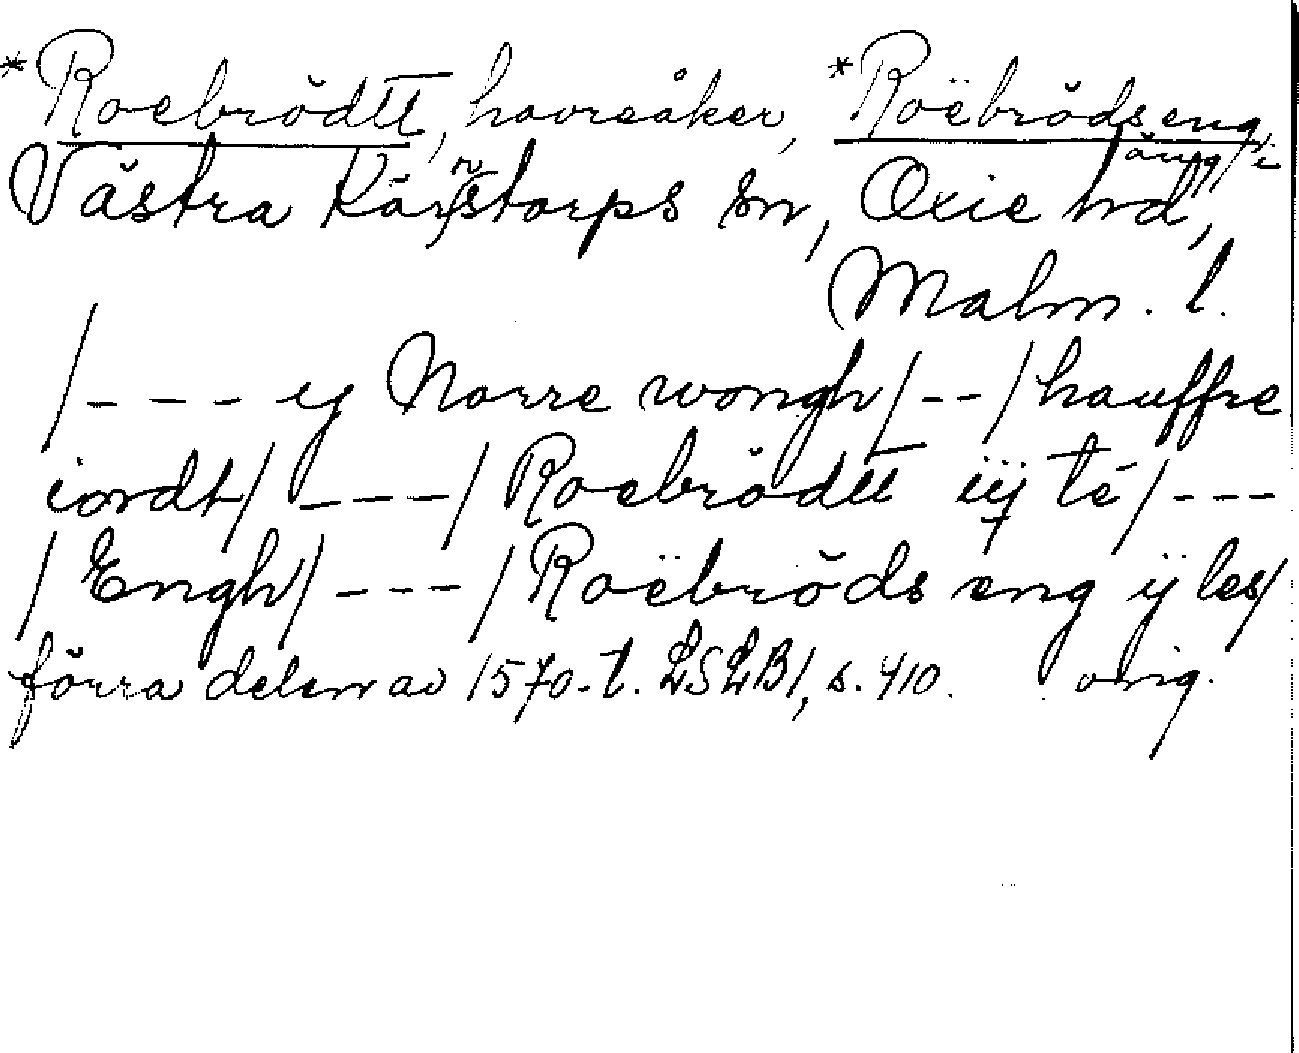 *Roebrödtt, havreåker, *Roëbröds eng, äng i
Västra Kärrstorps sn, Oxie hd,
Malm. l.
/--- ij Norre wongh/--/hauffre
iordt/---/Roebrödtt iij té/---
/Engh/---/Roëbröds eng ij les/
förra delen av 1570-t. LSLB1, s. 410. orig.